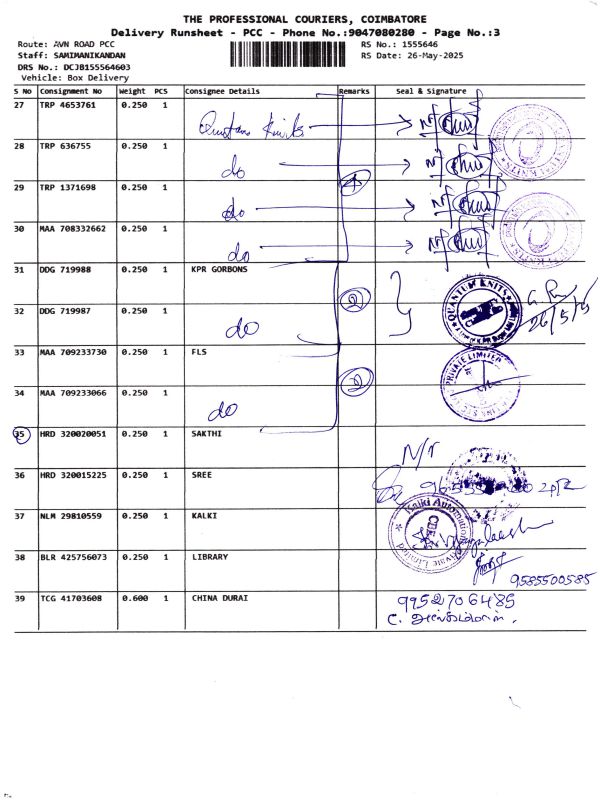 THE PROFESSIONAL COURIERS, COIMBATORE
Delivery Runsheet - PCC - Phone No.:9047080280 - Page No.:3
Route: AVN ROAD PCC
RS No.: 1555646
Staff: SAMIMANIKANDAN
RS Date: 26-May-2025
DRS No.: DCJB155564603
Vehicle: Box Delivery
S No Consignment No Weight PCS Consignee Details Remarks Seal & Signature
27 TRP 4653761 0.250 1
28 TRP 636755 0.250 1 do
29 TRP 1371698 0.250 1 do
4
30 MAA 708332662 0.250 1 do
31 DDG 719988 0.250 1 KPR GORBONS
2
QUANTUM KNITS
26/5/5
32 DDG 719987 0.250 1 do
33 MAA 709233730 0.250 1 FLS
2
PRIVATE LIMITED
34 MAA 709233066 0.250 1 do
35 HRD 320020051 0.250 1 SAKTHI N/T
36 HRD 320015225 0.250 1 SREE
37 NLM 29810559 0.250 1 KALKI
Kalki Automation Private Limited
CBE
38 BLR 425756073 0.250 1 LIBRARY
9585500585
39 TCG 41703608 0.600 1 CHINA DURAI 9952706485
C.